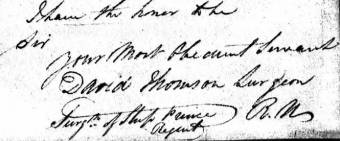 I have the honor to be
Sir
Your Most Obedient Servant
David Thomson Surgeon
Surgn. of Ship Prince R.N.
Regent